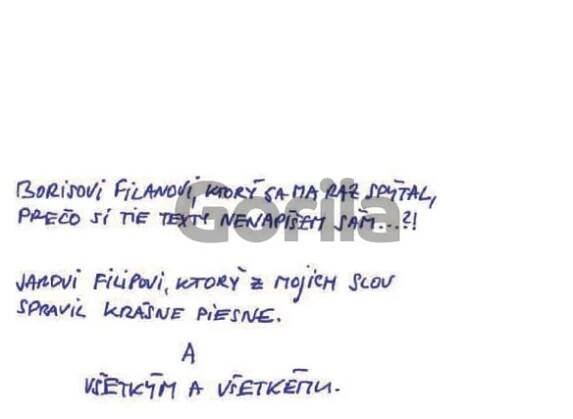 BORISOVI FILANOVI, KTORÝ SA MA RAZ SPÝTAL,
PREČO SI TIE TEXTY NENAPÍŠEM SÁM...?!
JAROVI FILIPOVI, KTORÝ Z MOJICH SLOV
SPRAVIL KRÁSNE PIESNE.
A
VŠETKÝM A VŠETKÉMU.
Gorila